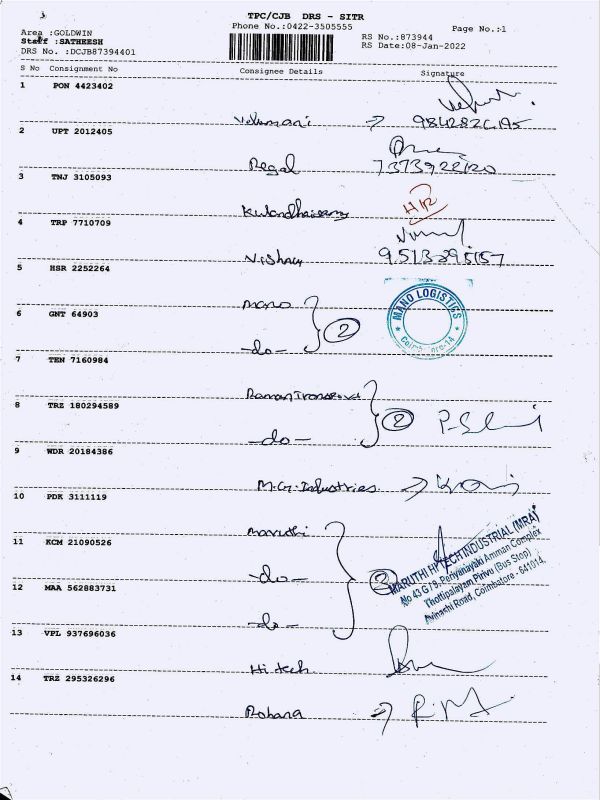 3
TPC/CJB DRS - SITR
Phone No.:0422-3505555
Page No.:1
Area :GOLDWIN
Staff :SATHEESH
DRS No. :DCJB87394401
RS No.:873944
RS Date:08-Jan-2022
S No Consignment No Consignee Details Signature
1 PON 4423402
Velumani →
2 UPT 2012405
Regal
3 TNJ 3105093
Kulandhaisamy
4 TRP 7710709
Vishay
5 HSR 2252264
Mano
6 GNT 64903
-do- 2
MANO LOGISTICS
7 TEN 7160984
8 TRZ 180294589
-do- 2
9 WDR 20184386
M.G. Industries →
10 PDK 3111119
Maruthi
11 KCM 21090526
-do- 3
MARUTHI HI TECH INDUSTRIAL (MRA)
No 43 G / 9, Periyanayaki Amman Complex
Thottipalayam Pirivu (Bus Stop)
Avinashi Road, Coimbatore - 641014.
12 MAA 562883731
-do-
13 VPL 937696036
Hi tech
14 TRZ 295326296
Rohana →